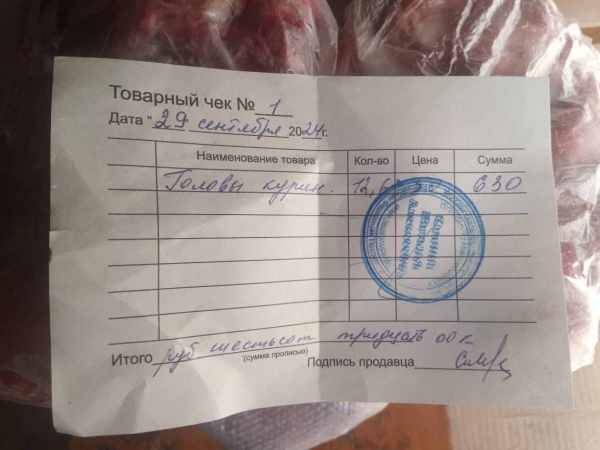 Товарный чек № 1
Дата "29 сентября 2024 г.
Наименование товара Кол-во Цена Сумма
Головы курин. 12,6 630
Итого руб шестьсот тридцать 00 к
(сумма прописью) Подпись продавца